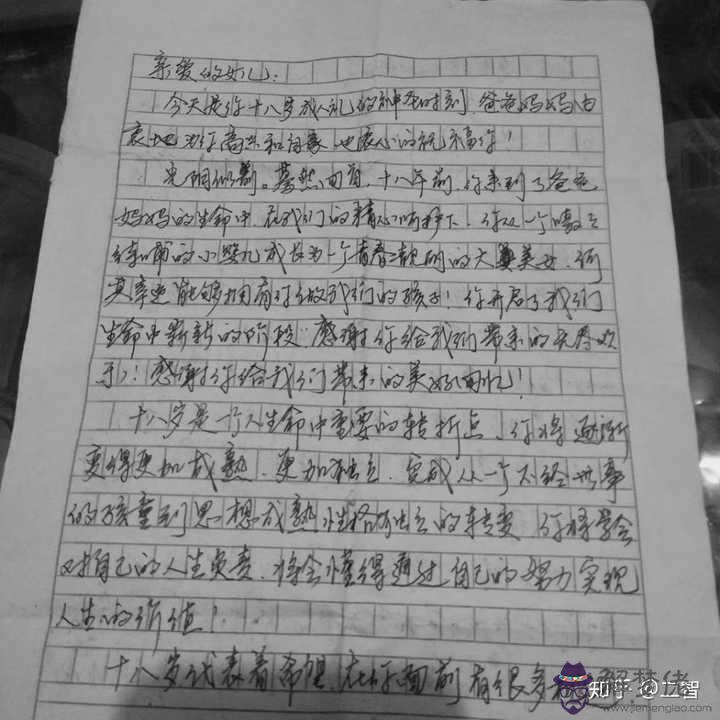 亲爱的妙儿:
今天是你十八岁成人礼的神圣时刻,爸爸妈妈由
衷地为你高兴和自豪,也衷心的祝福你!
光阴似箭。蓦然回首,十八年前,你来到了爸爸
妈妈的生命中,在我们的精心呵护下,你从一个嗷嗷
待哺的小婴儿成长为一个青春靓丽的大美女,何
其幸运能够拥有你做我们的孩子!你开启了我们
生命中崭新的阶段,感谢你给我们带来的无尽欢
乐!感谢你给我们带来的美好回忆!
十八岁是一个人生命中重要的转折点,你将逐渐
变得更加成熟、更加独立,完成从一个不经世事
的孩童到思想成熟、性格独立的转变,你将学会
对自己的人生负责,将会懂得通过自己的努力实现
人生的价值!
十八岁代表着希望,在你面前有很多
知乎 @立智
解梦佬
www.jiemenglao.com